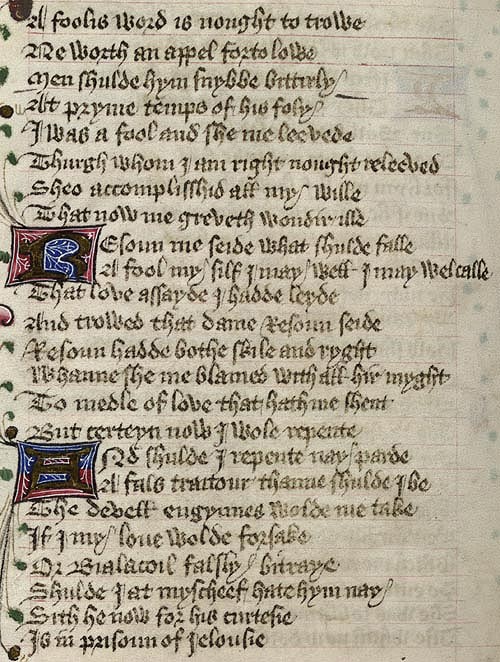 A foolis word is nought to trowe
Ne worth an appel forto lowe
Men shulde hym snybbe bittirly
At pryme temps of his foly
I was a fool and she me leevede
Thurgh whom I am right nought releeved
Sheo accomplisshid all my wille
That now me greveth wondir ille
Resoun me seide what shulde falle
A fool my silf I may well I may wel calle
That love assayde I hadde leyde
And trowed that dame Resoun seide
Resoun hadde bothe skile and ryght
Whanne she me blamed with all hir myght
To medle of love that hath me shent
But certeyn now I wole repente
And shulde I repente nay parde
A fals traitour thanne shulde I be
The devell engynnes wolde me take
If I my love wolde forsake
Or Bialacoil falsly bitraye
Shulde I at myscheef hate hym nay
Sith he now for his curtesie
Is in prisoun of Jelousie